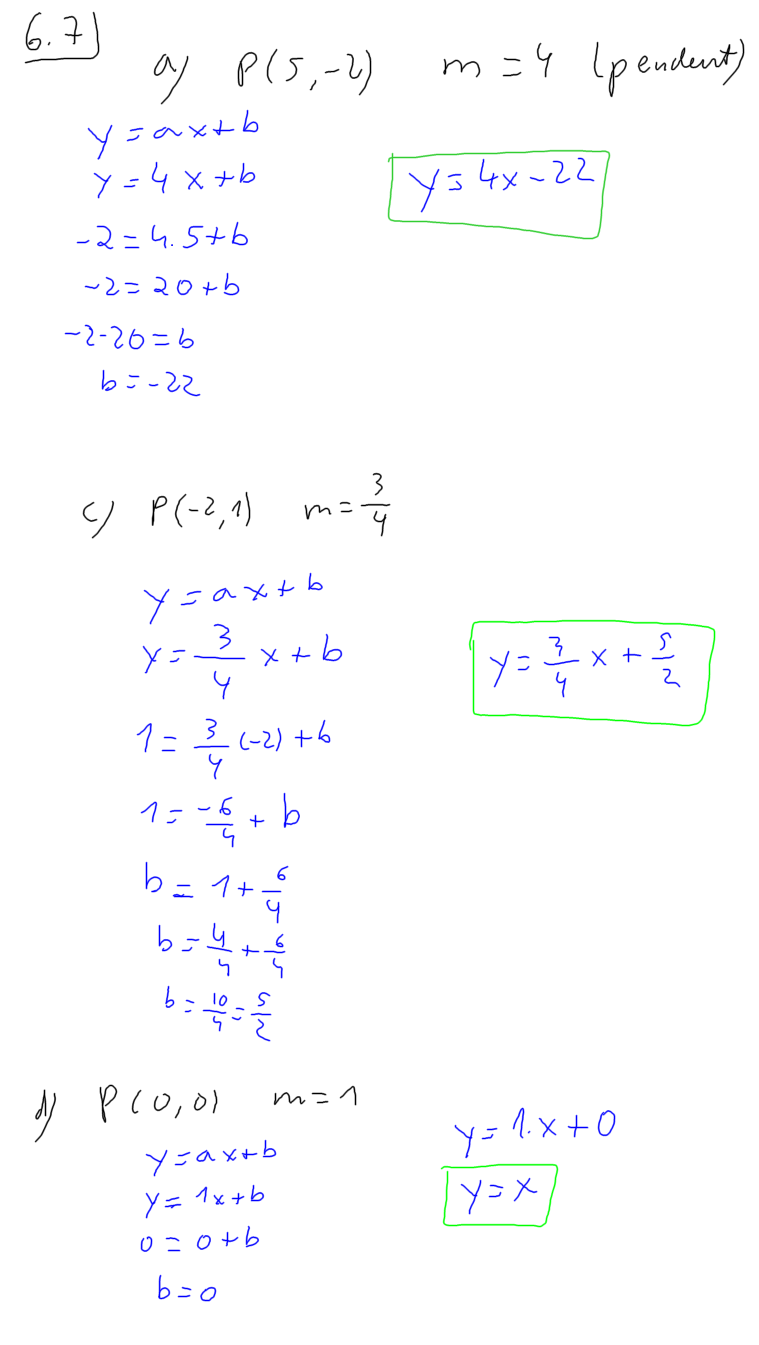 6.7)
a) P(5,-2) m = 4 (pendent)
y = ax+b
y = 4x+b
-2 = 4.5+b
-2 = 20+b
-2-20 = b
b = -22
y = 4x-22
c) P(-2,1) m = 3/4
y = ax+b
y = 3/4 x + b
1 = 3/4 (-2) + b
1 = -6/4 + b
b = 1 + 6/4
b = 4/4 + 6/4
b = 10/4 = 5/2
y = 3/4 x + 5/2
d) P(0,0) m = 1
y = ax+b
y = 1x+b
0 = 0+b
b = 0
y = 1.x+0
y = x